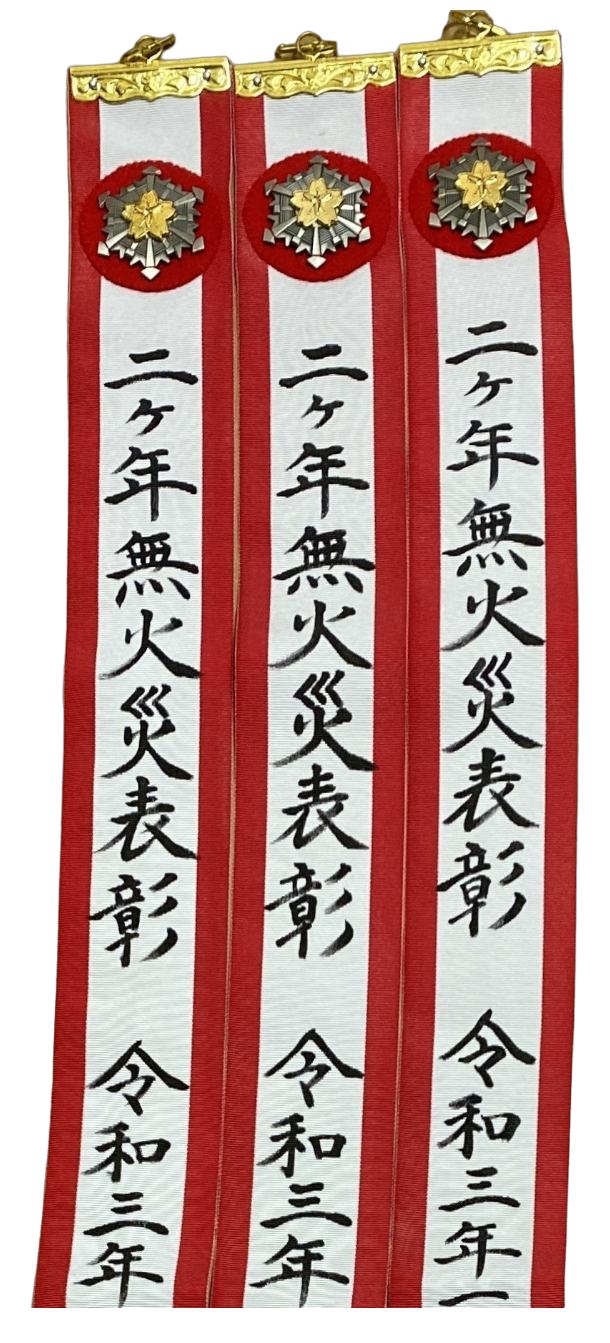 二ヶ年無火災表彰 令和三年
二ヶ年無火災表彰 令和三年
二ヶ年無火災表彰 令和三年